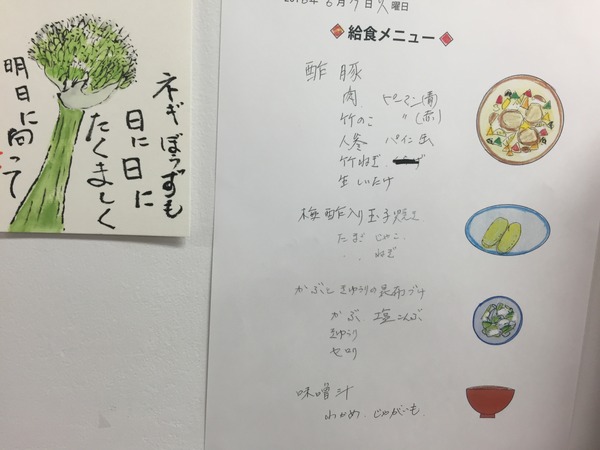 ネギぼうずも
日に日に
たくましく
明日に向って
曜日
給食メニュー
酢豚
肉 ピーマン(青)
竹のこ 〃 (赤)
人参 パイン缶
竹ねぎ
生しいたけ
梅酢入り玉子焼き
たまご じゃこ
ねぎ
かぶときゅうりの昆布づけ
かぶ 塩こんぶ
きゅうり
セロリ
味噌汁
わかめ、じゃがいも、